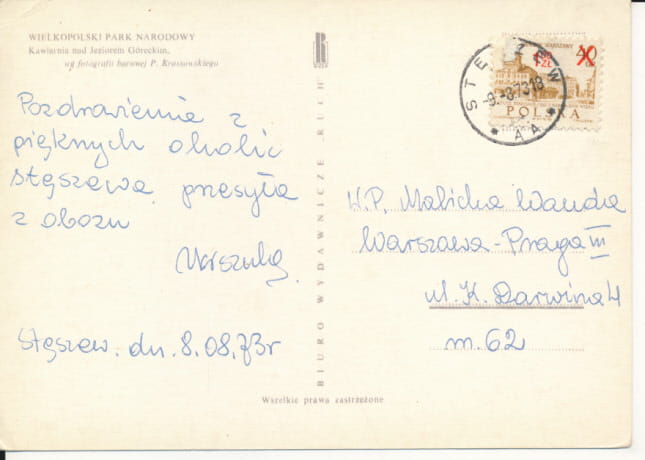 WIELKOPOLSKI PARK NARODOWY
Kawiarnia nad Jeziorem Góreckim,
wg fotografii barwnej P. Krassowskiego
Pozdrowienie z
pięknych okolic
Stęszewa przesyła
z obozu
Urszula
Stęszew. dn. 8.08.73r
BIURO WYDAWNICZE „RUCH"
Wszelkie prawa zastrzeżone
STĘSZEW
-9.-8.73 18
* AA *
WARSZAWY
40
1,50
ZŁ
POLSKA
W.P. Malicka Wanda
Warszawa-Praga III
ul. K. Darwina 4
m. 62